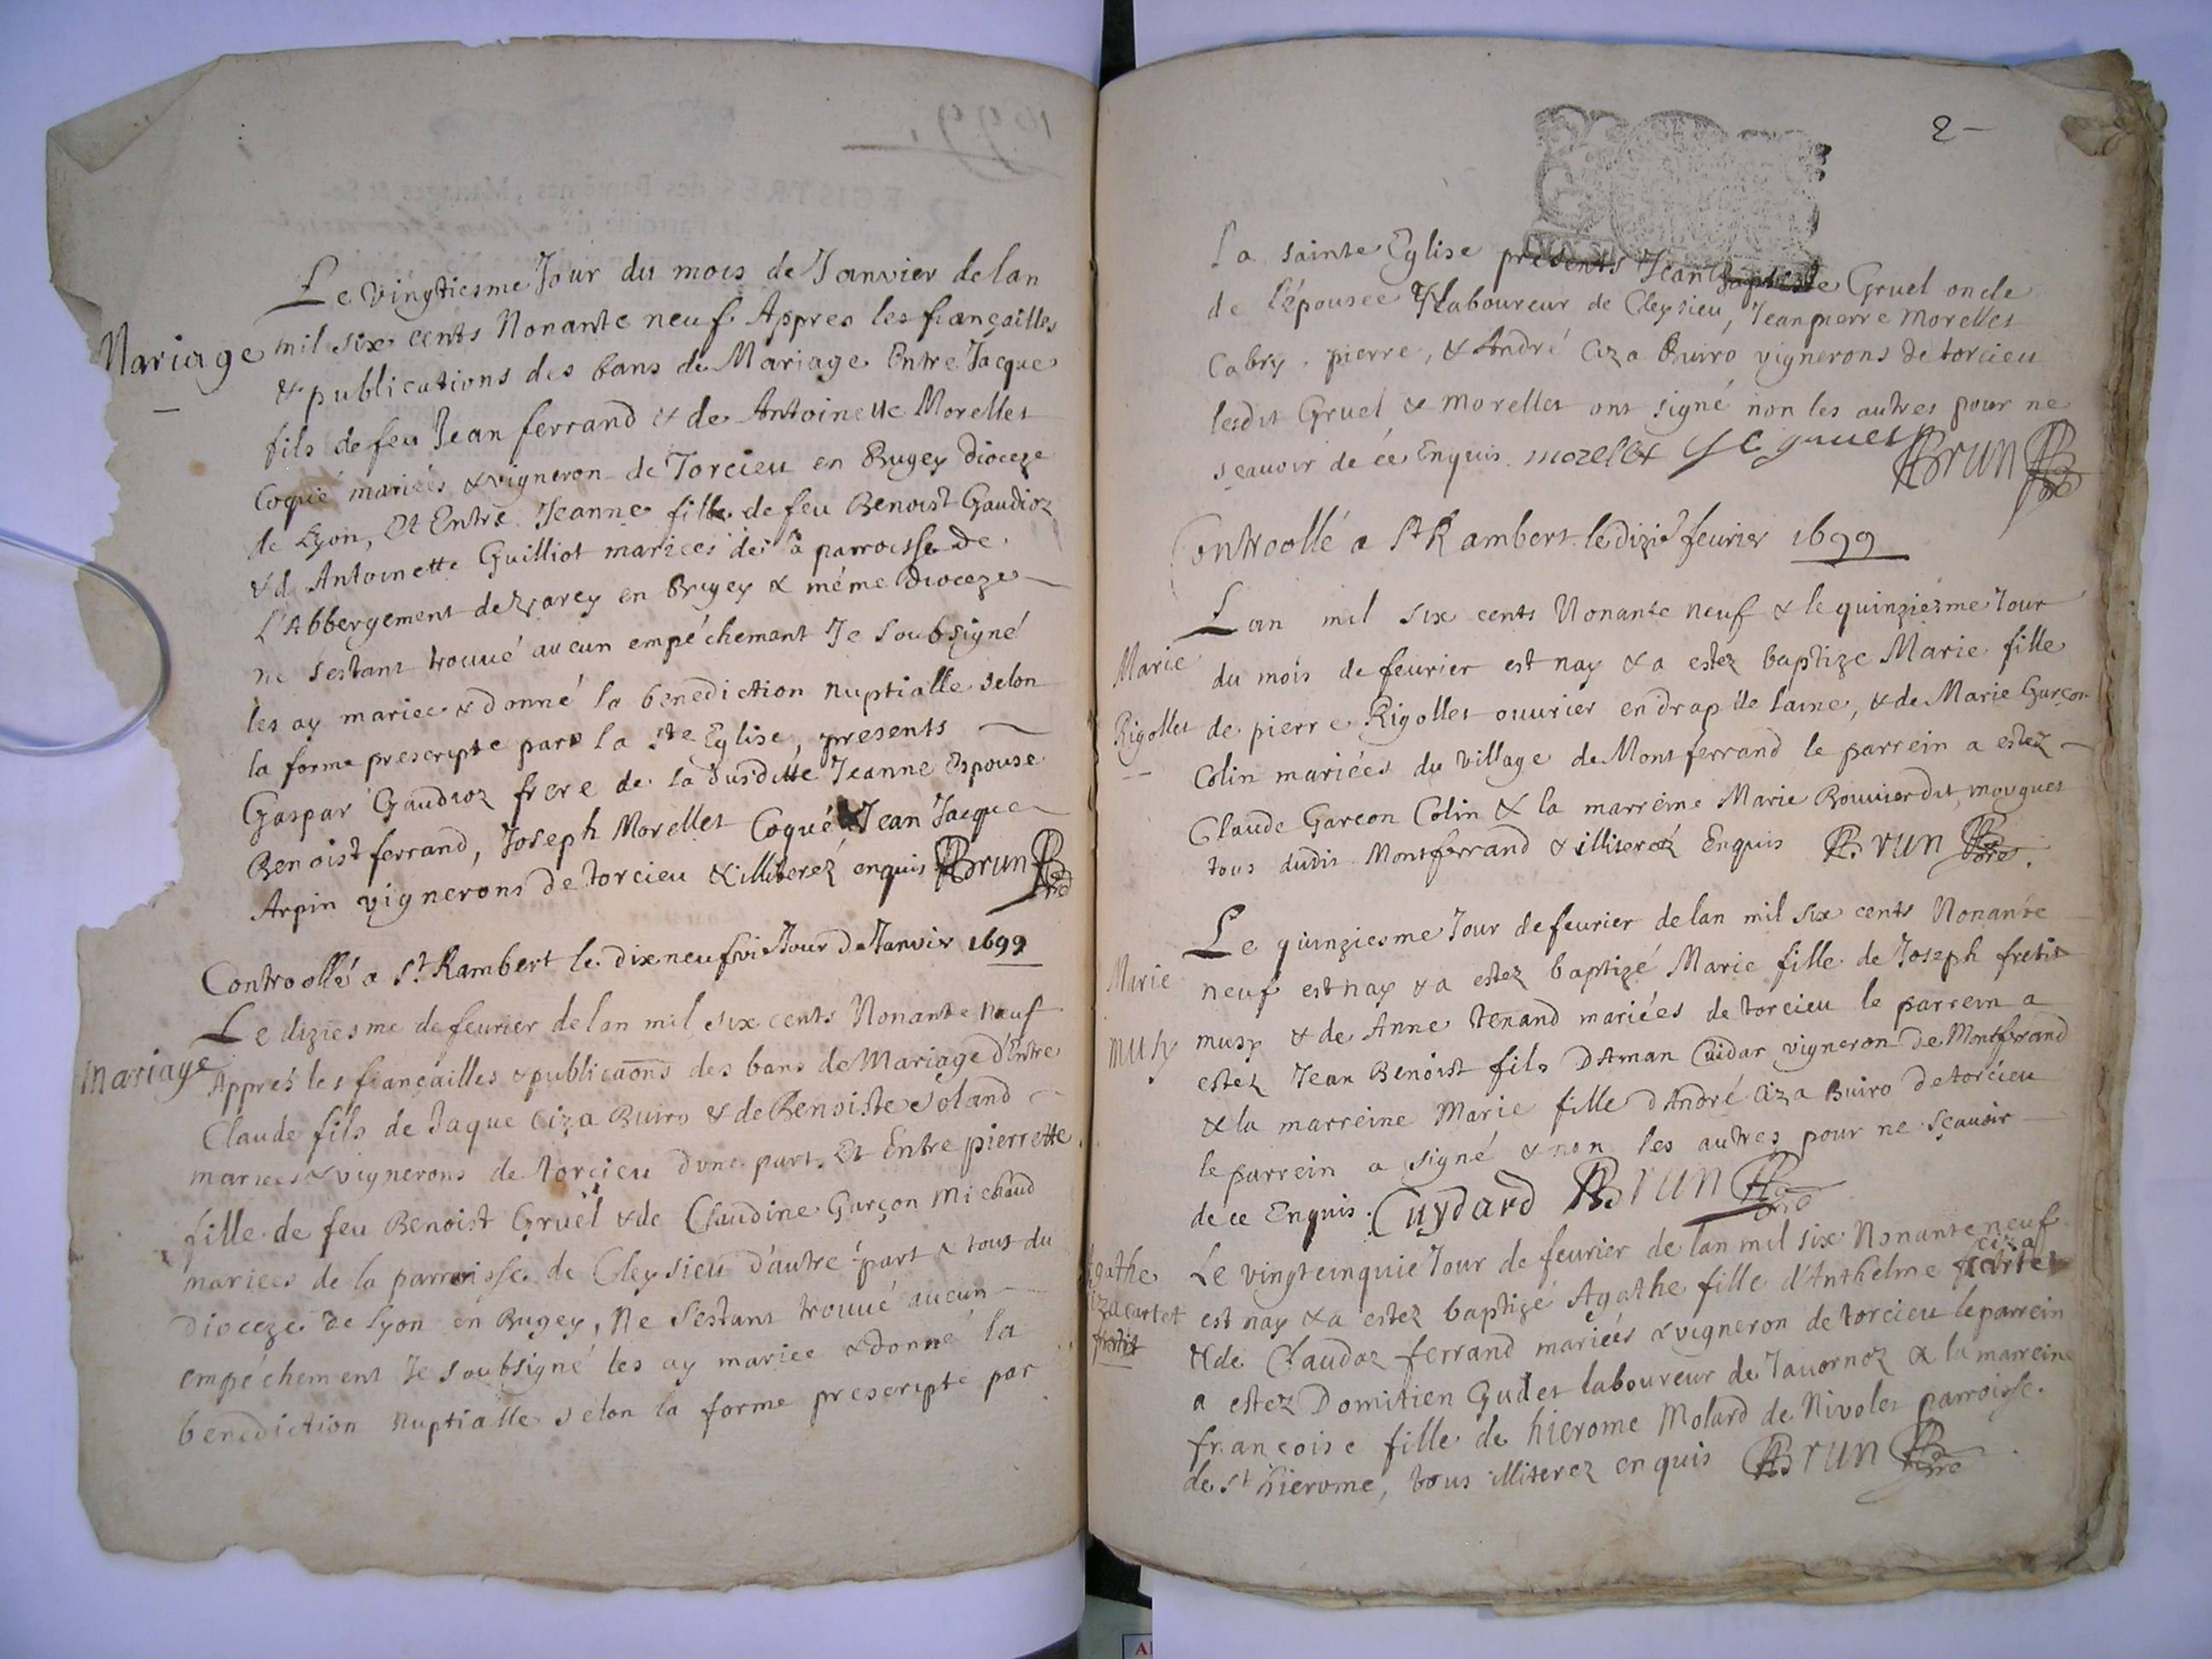 Mariage
Le vingtiesme Jour du mois de Janvier de lan
mil six cents Nonante neuf Appres les fiançailles
& publications des bans de Mariage Entre Jacque
fils de feu Jean ferrand & de Antoinette Morellet
Coqué mariés & vigneron de Torcieu en Bugey Dioceze
de Lyon, Et Entre Jeanne fille de feu Benoist Gaudioz
& d Antoinette Guilliot mariees de la parroisse de
L'Abbergement de Varey en Bugey & méme Dioceze
ne s'estant trouué aucun empéchement Je soubsigné
les ay mariee & donné la benediction nuptialle selon
la forme prescripte par la Ste Eglise, presents
Gaspar Gaudioz frere de la susditte Jeanne Espouse
Benoist ferrand, Joseph Morellet Coqué & Jean Jacque
Arpin vignerons de torcieu & illiteréz enquis Brun
Controollé a St Rambert le dixneufvie Jour de Janvier 1699
Mariage
Le diziesme de feurier de lan mil six cents Nonante neuf
Appres les fiançailles & publicaons des bans de Mariage d'Entre
Claude fils de Jaque Ciza Buiro & de Benoiste Soland
mariees & vignerons de torcieu dune part, Et Entre pierrette
fille de feu Benoist Gruel & de Claudine Garçon Michaud
mariees de la parroisse de Cleysieu d'autre part & tous du
Dioceze de Lyon en Bugey, Ne s'estant trouué aucun
empéchement Je soubsigné les ay mariee & donné la
benediction nuptialle selon la forme prescripte par
2
la sainte Eglise presents Jean Baptiste Gruel oncle
de l'épousee & laboureur de Cleysieu, Jeanpierre Morellet
Cabry, pierre, & André Ciza Buiro vignerons de torcieu
lesdit Gruel & Morellet ont signé non les autres pour ne
sçauoir de ce Enquis. morelet gruel Brun
Controollé a St Rambert le dizie feurier 1699
Marie
Rigollet
Lan mil six cents Nonante neuf & le quinziesme Jour
du mois de feurier est nay & a estez baptize Marie fille
de pierre Rigollet ouurier en drap de laine, & de Marie Garçon
Colin mariées du village de Montferrand le parrein a estez
Claude Garcon Colin & la marreine Marie Bouuier dit mouguet
tous dudit Montferrand & illiteréz Enquis Brun
Marie
musy
Le quinziesme Jour de feurier de lan mil six cents Nonante
neuf est nay & a estez baptizé Marie fille de Joseph fretit
musy & de Anne tenand mariées de torcieu le parrein a
estez Jean Benoist fils D'Aman Cuidar vigneron de Montferrand
& la marreine Marie fille d'André Ciza Buiro de torcieu
le parrein a signé & non les autres pour ne sçauoir
de ce Enquis. Cuydard Brun
Agathe
Ciza cartet
Le vingtcinquie Jour de feurier de lan mil six Nonante neuf
ciza
est nay & a estez baptizé Agathe fille d'Anthelme cartet
& de Claudaz ferrand mariees & vigneron de torcieu le parrein
a estez Domitien Gudet laboureur de Jauornoz & la marreine
francoise fille de hierome Molard de Nivolet parroisse
de St hierome, tous illiterez enquis Brun